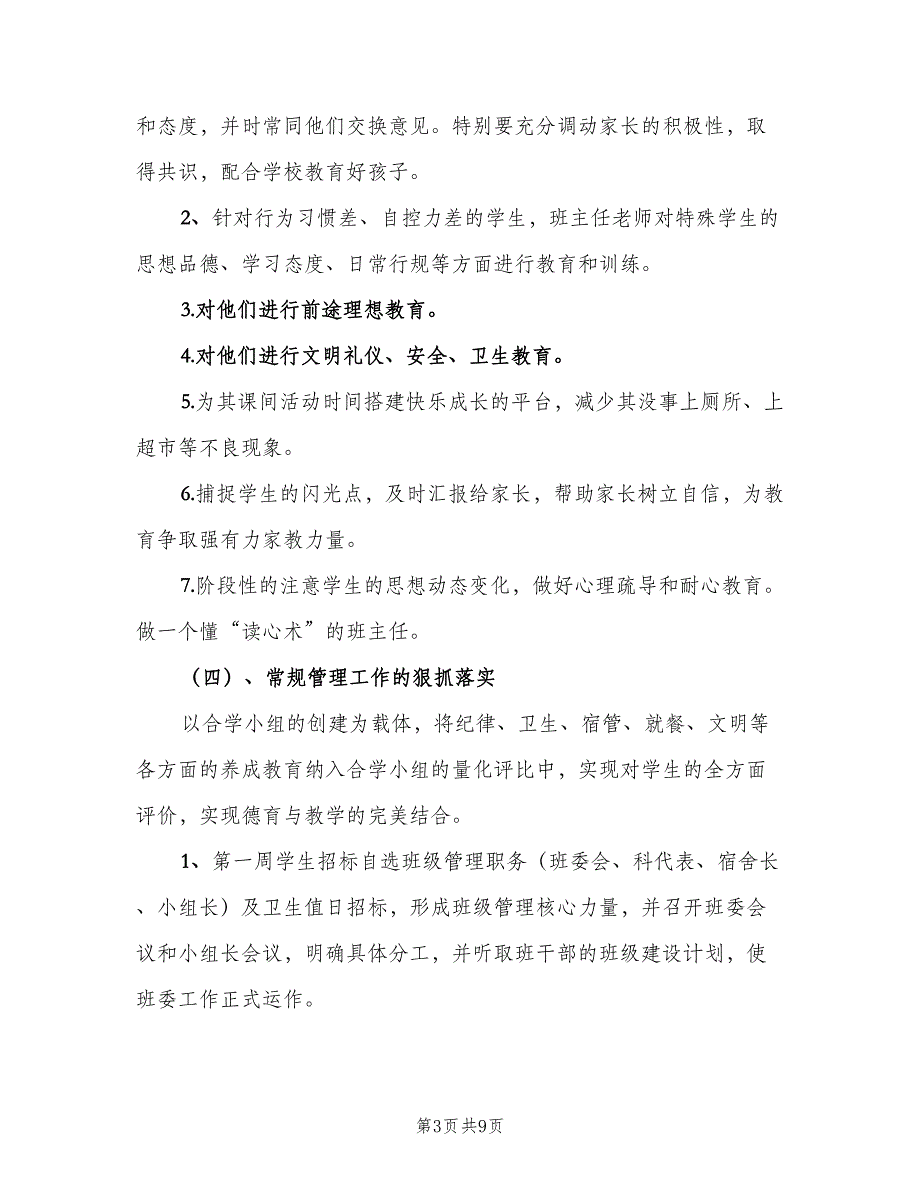 和态度，并时常同他们交换意见。特别要充分调动家长的积极性，取
得共识，配合学校教育好孩子。
2、针对行为习惯差、自控力差的学生，班主任老师对特殊学生的
思想品德、学习态度、日常行规等方面进行教育和训练。
3.对他们进行前途理想教育。
4.对他们进行文明礼仪、安全、卫生教育。
5.为其课间活动时间搭建快乐成长的平台，减少其没事上厕所、上
超市等不良现象。
6.捕捉学生的闪光点，及时汇报给家长，帮助家长树立自信，为教
育争取强有力家教力量。
7.阶段性的注意学生的思想动态变化，做好心理疏导和耐心教育。
做一个懂“读心术”的班主任。
（四）、常规管理工作的狠抓落实
以合学小组的创建为载体，将纪律、卫生、宿管、就餐、文明等
各方面的养成教育纳入合学小组的量化评比中，实现对学生的全方面
评价，实现德育与教学的完美结合。
1、第一周学生招标自选班级管理职务（班委会、科代表、宿舍长
、小组长）及卫生值日招标，形成班级管理核心力量，并召开班委会
议和小组长会议，明确具体分工，并听取班干部的班级建设计划，使
班委工作正式运作。
第3页共9页